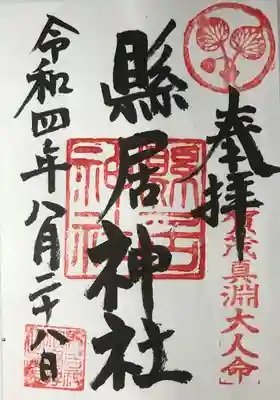 奉拝
賀茂真淵大人命
縣居神社
縣居
神社
令和四年八月二十八日